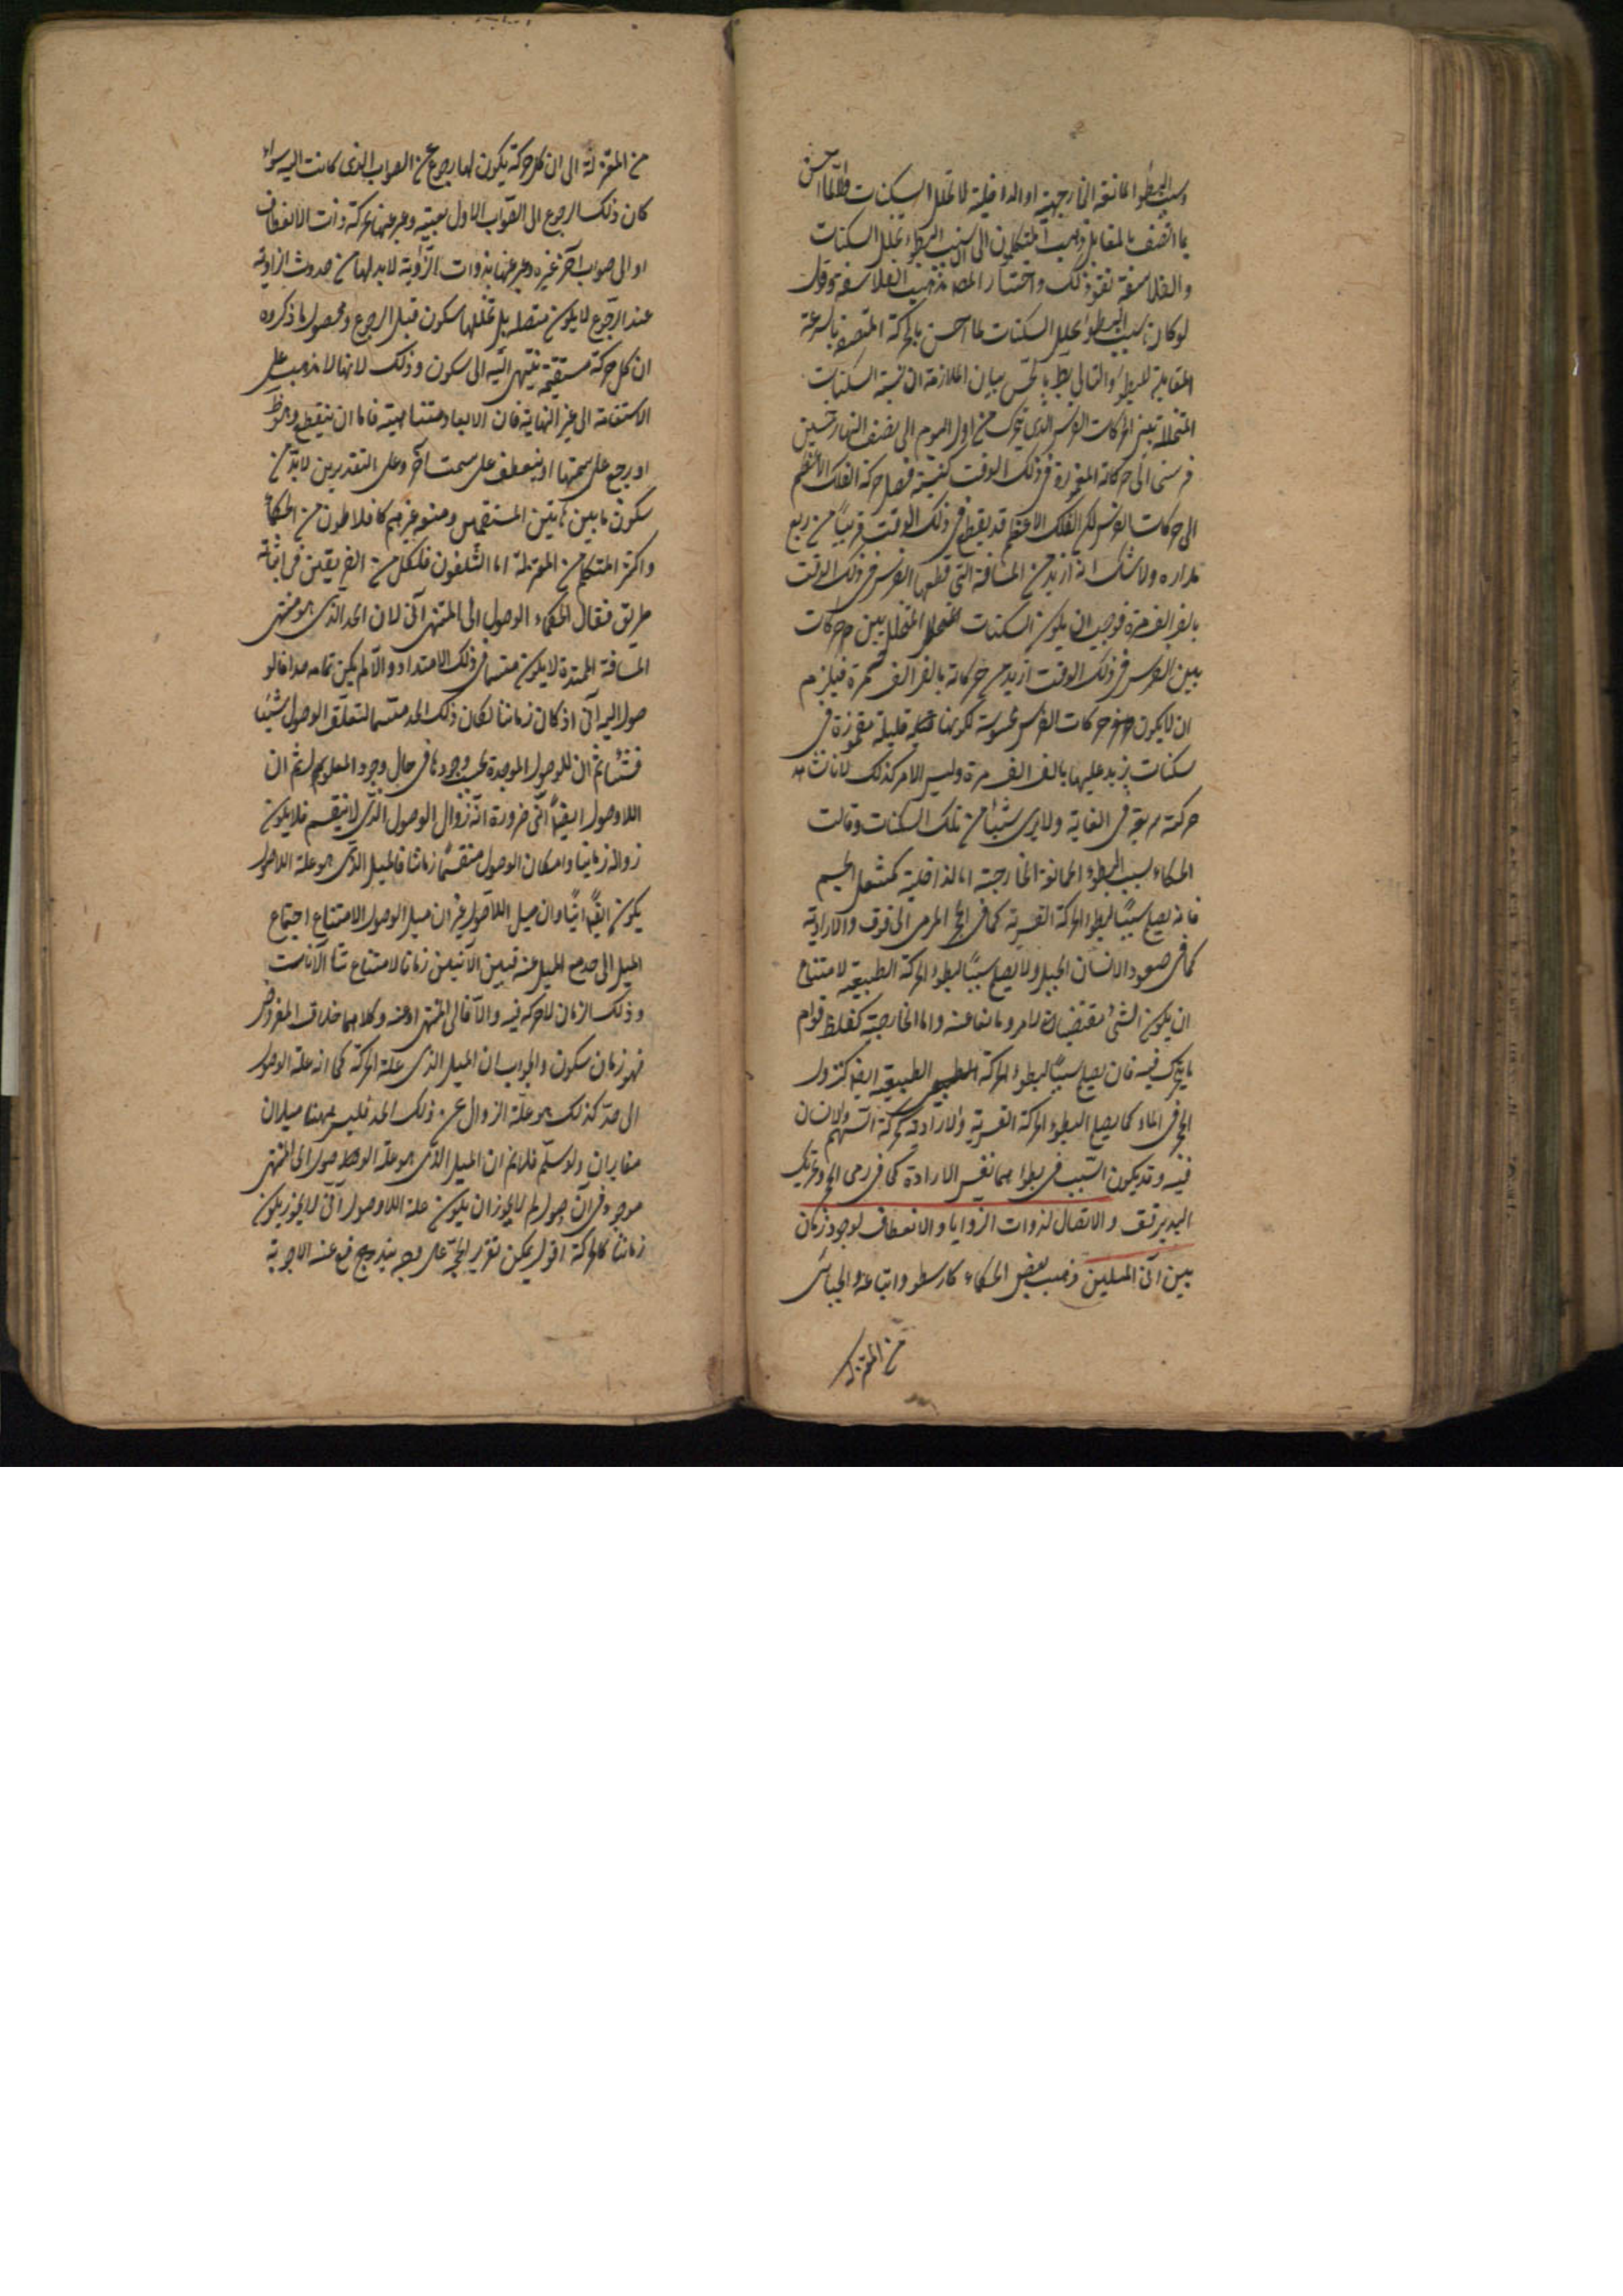 وسبب البطؤ الممانعة الخارجية او الداخلية لا تخلل السكنات والا لما احس
بما اتصف بالمقابل ذهب المتكلمون الى ان سبب البطؤ تخلل السكنات
والفلاسفة نفوا ذلك واختار المصـ مذهب الفلاسفة وقال
لو كان سبب البطؤ تخلل السكنات لما احس بالحركة المتصفة بالسرعة
المقابلة للبطؤ والتالى بط بالحس بيان الملازمة ان نسبة السكنات
المتخللة بين الحركات الفرس الذى تحرك من اول اليوم الى نصف النهار خمسين
فرسخا الى حركاته المغمورة فى ذلك الوقت كنسبة فضل حركة الفلك الاعظم
الى حركات الفرس لكن الفلك الاعظم قد يقطع فى ذلك الوقت قريبا من ربع
مداره ولا شك انه ازيد من المسافة التى قطعها الفرس فى ذلك الوقت
بالف الف مرة فوجب ان يكون السكنات المتخلل بين حركات
بين الفرس فى ذلك الوقت ازيد من حركاته بالف الف مرة فيلزم
ان لا يكون حركات الفرس محسوسة لكونها قليلة مغمورة فى
سكنات يزيد عليها بالف الف مرة وليس الامر كذلك لانا نشاهد
حركته سريعة فى الغاية ولا يرى شيئا من تلك السكنات وقالت
الحكماء سبب البطؤ الممانعة الخارجية اما الداخلية كثقل الجسم
فانه يصلح سببا لبطؤ الحركة القسرية كما فى الحجر المرمى الى فوق والارادية
كما فى صعود الانسان الجبل ولا يصلح سببا لبطؤ الحركة الطبيعية لامتناع
ان يكون الشئ مقتضيا لامر ومانعا عنه واما الخارجية كغلظ قوام
ما يتحرك فيه فان يصلح سببا لبطؤ الحركة الطبيعية ايضا كنزول
الحجر فى الماء كما يصلح البطؤ الحركة القسرية والارادية كحركة السهم والانسان
فيه وقد يكون السبب فى بطؤهما نفس الارادة كما فى رمى الحجر وتحريك
اليد برفق ولا اتصال لذوات الزوايا والانعطاف لوجود زمان
بين آنى الميلين ذهب بعض الحكماء كارسطو واتباعه والجبائى
من المعتزلة
من المعتزلة الى ان كل حركة يكون لها رجوع عن الصواب الذى كانت اليه سواء
كان ذلك الرجوع الى الصواب الاول بعينه وعبر عنها بحركة ذات الانعطاف
او الى صواب آخر غيره وعبر عنها بذوات الزاوية لابد لها من حدوث الزاوية
عند الرجوع لا يكون متصلة بل تخللها سكون قبل الرجوع ومحصول ما ذكروه
ان كل حركة مستقيمة ينتهى البتة الى سكون وذلك لانها لا تذهب على
الاستقامة الى غير النهاية فان الابعاد متناهية فاما ان ينقطع وهو ظ
او يرجع على سمتها او ينعطف على سمت آخر وعلى التقديرين لابد من
سكون ما بين هاتين المستقيمتين ومنعه غيرهم كافلاطون من الحكماء
واكثر المتكلمين من المعتزلة اما المثبتون فلكل من الفريقين فى اثباته
طريق فقال الحكماء الوصول الى المنتهى آنى لان الحد الذى هو منتهى
المسافة الممتدة لا يكون منقسما فى ذلك الامتداد والا لم يكن تمامه حدا فالو
صول اليه آنى اذ لو كان زمانيا لكان ذلك الحد منقسما لتعلق الوصول شيئا
فشيئا ثم ان للوصول الموجدة يجب وجودها فى حال وجود المعلول ثم ان
اللاوصول ايضا آنى ضرورة انه زوال الوصول الذى لا ينقسم فلا يكون
زواله زمانيا وامكان الوصول منقسما زمانيا فالميل الذى هو علة اللاوصول
يكون ايضا آنيا وان ميل اللاوصول غير ان ميل الوصول لامتناع اجتماع
الميل الى حد مع الميل عنه فبين الآنين زمان لامتناع تتالى الآنات
وذلك الزمان لا حركة فيه والا فالى المنتهى او عنه وكلاهما خلاف المفروض
فهو زمان سكون والجواب ان الميل الذى علة الحركة كما انه علة الوصول
الى حد كذلك هو علة الزوال عن ذلك الحد فليس ههنا ميلان
متغايران ولو سلم فلانم ان الميل الذى هو علة الوصول الى المنتهى
موجود فى آن وصول لم لا يجوز ان يكون علة اللاوصول آنى لم لا يجوز يكون
زمانيا كالحركة اقول يمكن تقرير الحجة على وجه يندفع عنه الاجوبة